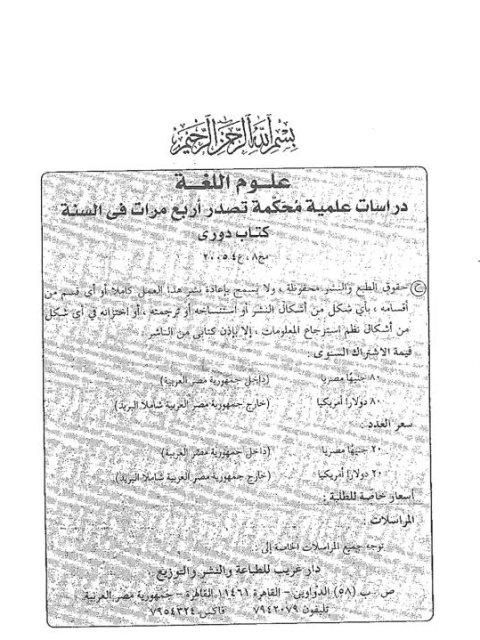 بسم الله الرحمن الرحيم
علوم اللغة
دراسات علمية مُحكّمة تصدر أربع مرات فى السنة
كتاب دورى
مج٨، ع٤، ٢٠٠٥
© حقوق الطبع والنشر محفوظة، ولا يسمح بإعادة نشر هذا العمل كاملاً أو أى قسم من
أقسامه، بأي شكل من أشكال النشر أو استنساخه أو ترجمته، أو اختزانه فى أى شكل
من أشكال نظم استرجاع المعلومات، إلا بإذن كتابى من الناشر.
قيمة الاشتراك السنوى:
٨٠ جنيهًا مصريا (داخل جمهورية مصر العربية)
٨٠ دولارًا أمريكيا (خارج جمهورية مصر العربية شاملا البريد)
سعر العدد:
٢٠ جنيهًا مصريا (داخل جمهورية مصر العربية)
٢٠ دولارًا أمريكيا (خارج جمهورية مصر العربية شاملا البريد)
أسعار خاصة للطلبة:
المراسلات:
توجه جميع المراسلات الخاصة إلى:
دار غريب للطباعة والنشر والتوزيع
ص. ب (٥٨) الدواوين - القاهرة ١١٤٦١ القاهرة - جمهورية مصر العربية
تليفون ٧٩٤٢٠٧٩ فاكس ٧٩٥٤٣٢٤